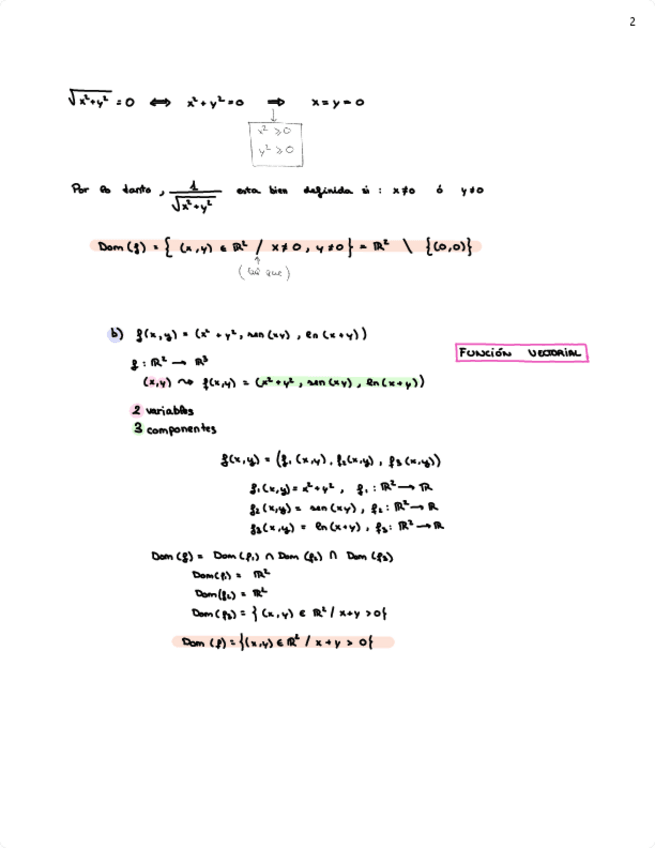 2
√x²+y² = 0 ⟺ x²+y²=0 ⟹ x=y=0
x² ≥ 0
y² ≥ 0
Por lo tanto, 1/√x²+y² esta bien definida si : x≠0 ó y≠0
Dom(f) = { (x,y) ∈ ℝ² / x≠0, y≠0 } = ℝ² \ {(0,0)}
(tal que)
b) f(x,y) = (x² + y², sen(xy), ln(x+y))
FUNCIÓN VECTORIAL
f : ℝ² → ℝ³
(x,y) ⇝ f(x,y) = (x²+y², sen(xy), ln(x+y))
2 variables
3 componentes
f(x,y) = (f₁(x,y), f₂(x,y), f₃(x,y))
f₁(x,y) = x²+y², f₁ : ℝ² → ℝ
f₂(x,y) = sen(xy), f₂ : ℝ² → ℝ
f₃(x,y) = ln(x+y), f₃ : ℝ² → ℝ
Dom(f) = Dom(f₁) ∩ Dom(f₂) ∩ Dom(f₃)
Dom(f₁) = ℝ²
Dom(f₂) = ℝ²
Dom(f₃) = {(x,y) ∈ ℝ² / x+y >0}
Dom(f) = {(x,y) ∈ ℝ² / x+y > 0}